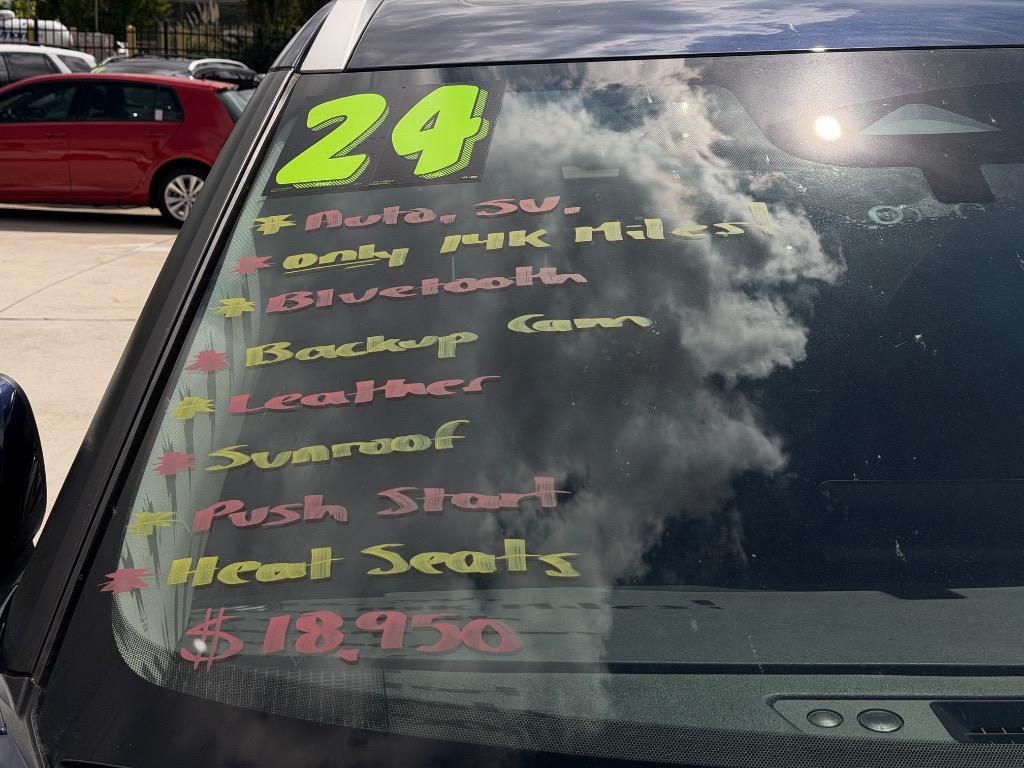 24
* Auto, SU.
* only 14K Miles!
* Bluetooth
* Backup Cam
* Leather
* Sunroof
* Push Start
* Heat Seats
$18,950